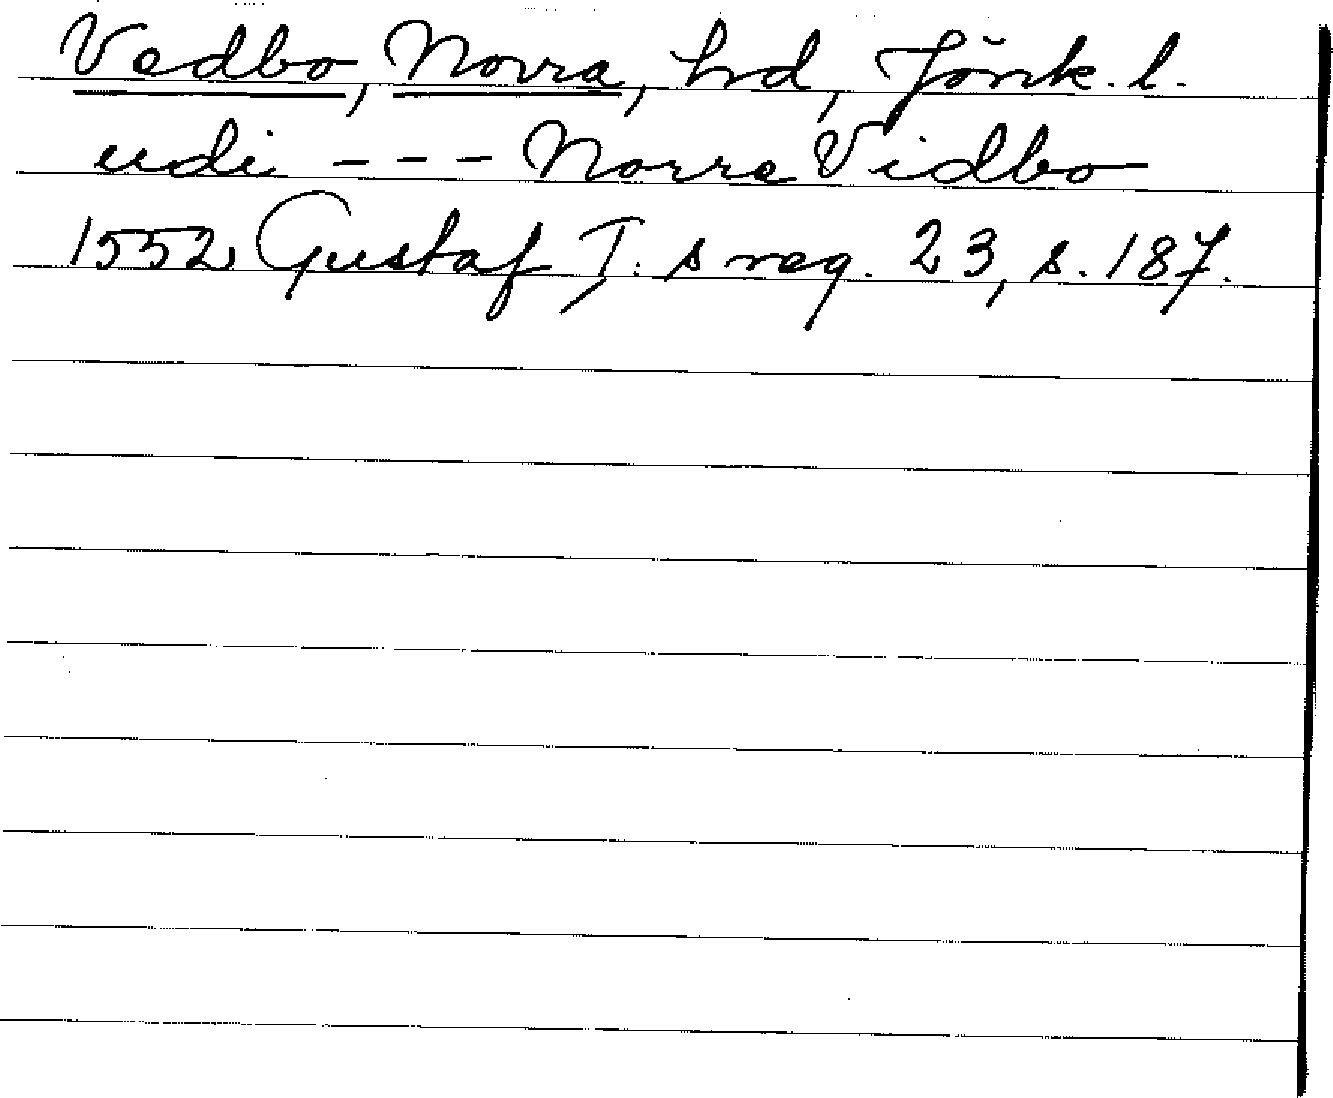 Vedbo, Norra, hrd, Jönk. l.
udi - - - Norre Vidbo
1552 Gustaf I:s reg. 23, s. 187.